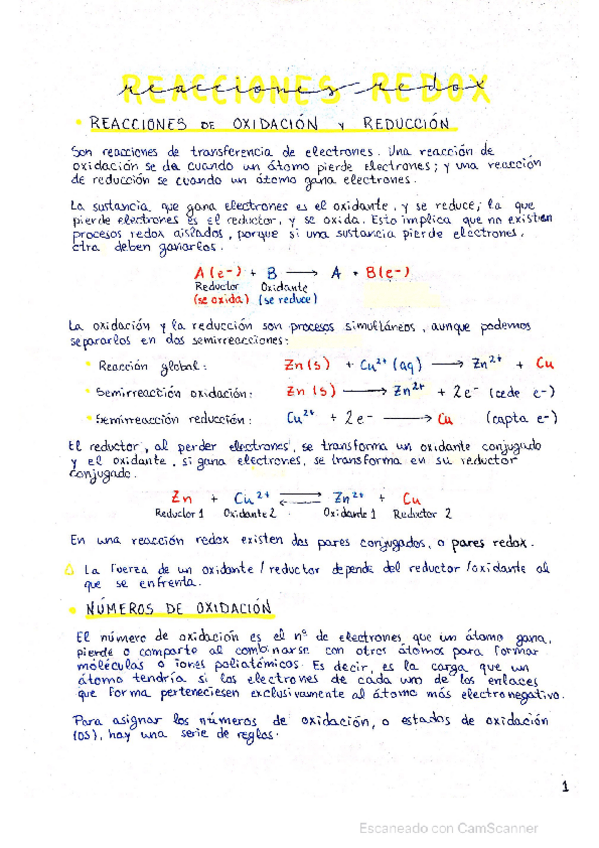 REACCIONES REDOX
reacciones redox
• REACCIONES DE OXIDACIÓN Y REDUCCIÓN
Son reacciones de transferencia de electrones. Una reacción de
oxidación se da cuando un átomo pierde electrones; y una reacción
de reducción se cuando un átomo gana electrones.
La sustancia que gana electrones es el oxidante, y se reduce; la que
pierde electrones es el reductor, y se oxida. Esto implica que no existen
procesos redox aislados, porque si una sustancia pierde electrones,
otra deben ganarlos.
A(e-) + B ⟶ A + B(e-)
Reductor Oxidante
(se oxida) (se reduce)
La oxidación y la reducción son procesos simultáneos, aunque podemos
separarlos en dos semirreacciones:
• Reacción global: Zn(s) + Cu²⁺(aq) ⟶ Zn²⁺ + Cu
• Semirreacción oxidación: Zn(s) ⟶ Zn²⁺ + 2e⁻ (cede e-)
• Semirreacción reducción: Cu²⁺ + 2e⁻ ⟶ Cu (capta e-)
El reductor, al perder electrones, se transforma un oxidante conjugado
y el oxidante, si gana electrones, se transforma en su reductor
conjugado.
Zn + Cu²⁺ ⇌ Zn²⁺ + Cu
Reductor 1 Oxidante 2 Oxidante 1 Reductor 2
En una reacción redox existen dos pares conjugados, o pares redox.
△ La fuerza de un oxidante/reductor depende del reductor/oxidante al
que se enfrenta.
• NÚMEROS DE OXIDACIÓN
El número de oxidación es el nº de electrones que un átomo gana,
pierde o comparte al combinarse con otros átomos para formar
moléculas o iones poliatómicos. Es decir, es la carga que un
átomo tendría si los electrones de cada uno de los enlaces
que forma perteneciesen exclusivamente al átomo más electronegativo.
Para asignar los números de oxidación, o estados de oxidación
(OS), hay una serie de reglas.
1
Escaneado con CamScanner